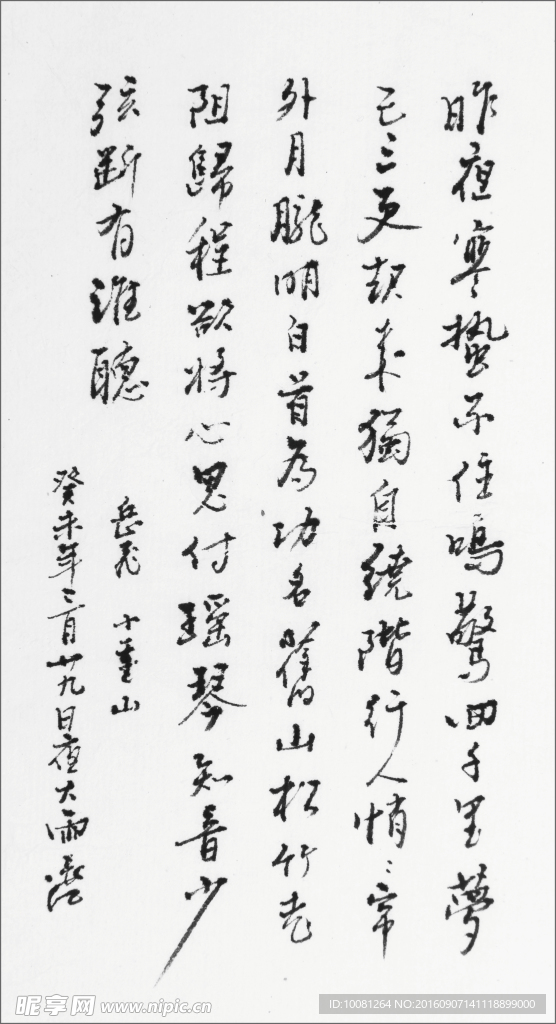 昨夜寒蛩不住鳴驚回千里夢
已三更起来獨自繞階行人悄〻帘
外月朧明白首為功名舊山松竹老
阻歸程欲將心事付瑶琴知音少
弦断有誰聽
岳飛 小重山
癸未年二月廿九日夜大雨
昵享网 www.nipic.cn
ID:10081264 NO:20160907141118899000